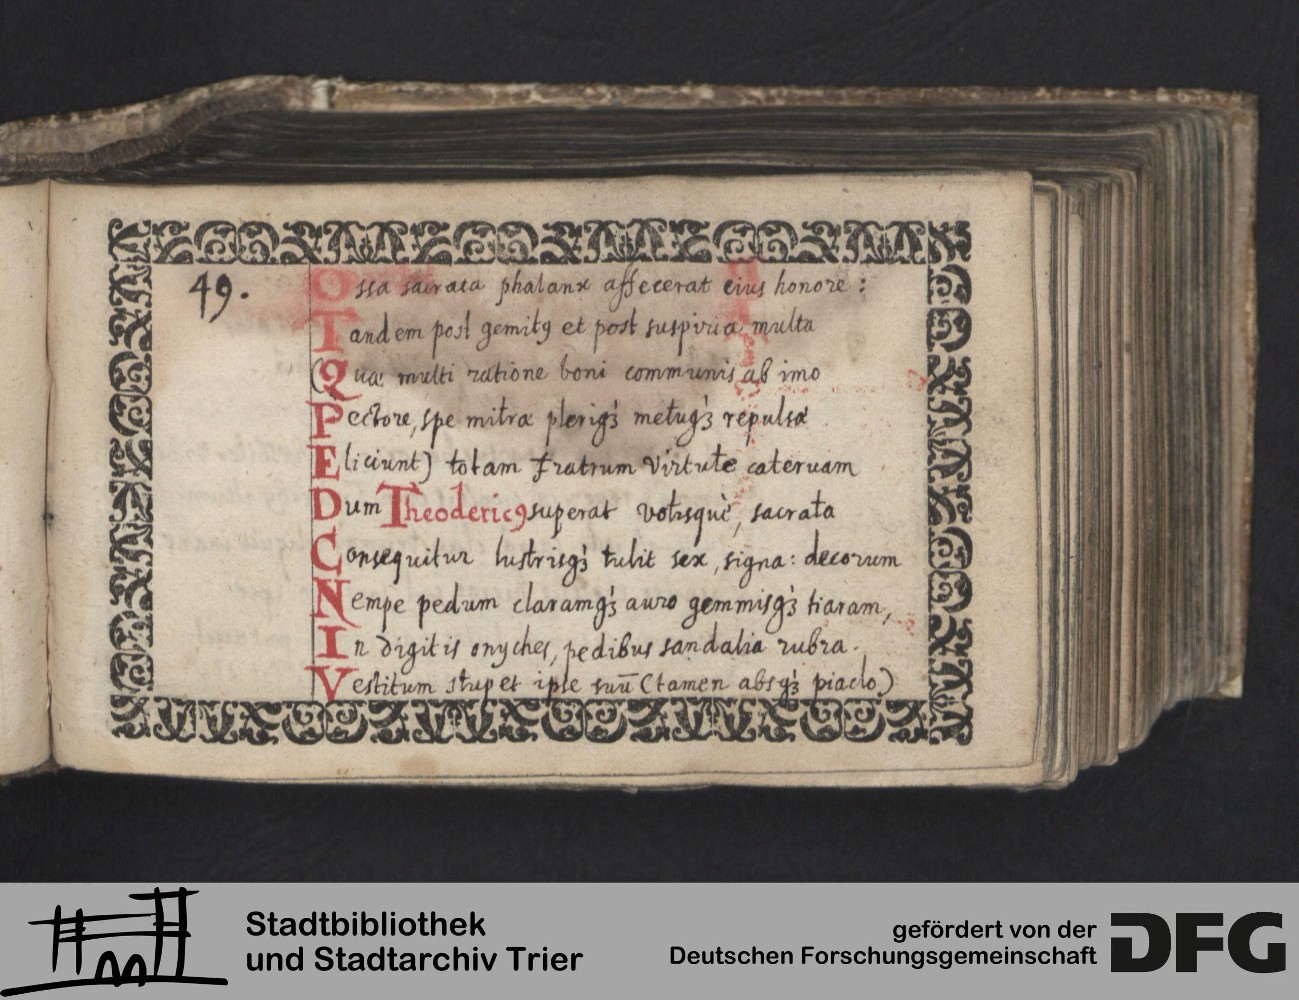 49.
Ossa sacrata phalanx affecerat eius honore:
Tandem post gemitꝯ et post suspiria multa
(Quæ multi ratione boni communis ab imo
Pectore, spe mitræ plerisqꝫ metuqꝫ repulsa
Eliciunt) totam fratrum virtute cateruam
Dum Theodericꝯ superat votisquè, sacrata
Consequitur lustrisqꝫ tulit sex, signa: decorum
Nempe pedum claramqꝫ auro gemmisqꝫ tiaram,
In digitis onyches, pedibus sandalia rubra.
Vestitum stupet ipse suū (tamen absqꝫ piaclo)
Stadtbibliothek
und Stadtarchiv Trier
gefördert von der
Deutschen Forschungsgemeinschaft
DFG